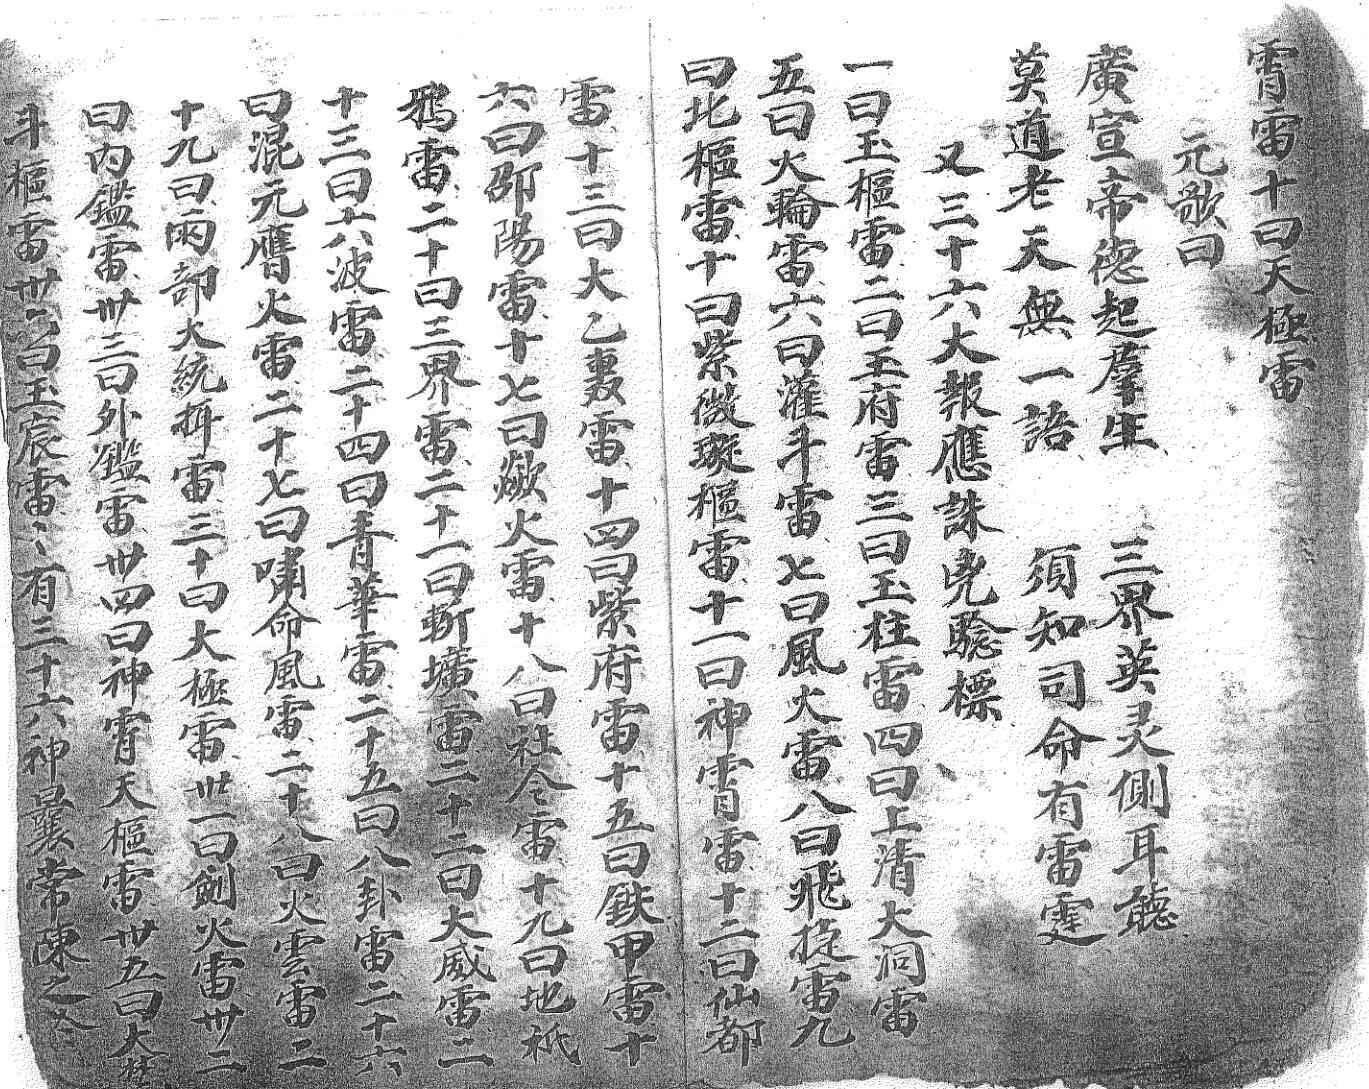 霄雷十曰天極雷
元歌曰
廣宣帝德起羣生　三界英灵側耳聽
莫道老天無一語　須知司命有雷霆
又三十六大報應誅兇驗標
一曰玉樞雷二曰玉府雷三曰玉柱雷四曰上清大洞雷
五曰火輪雷六曰灌斗雷七曰風火雷八曰飛捉雷九
曰北極雷十曰紫微璇樞雷十一曰神霄雷十二曰仙都
雷十三曰太乙轟雷十四曰紫府雷十五曰鉄甲雷十
六曰邵陽雷十七曰歘火雷十八曰社令雷十九曰地祇
鴉雷二十曰三界雷二十一曰斬壙雷二十二曰大威雷二
十三曰六波雷二十四曰青華雷二十五曰八卦雷二十六
曰混元鷹火雷二十七曰嘯命風雷二十八曰火雲雷二
十九曰雨部大統攝雷三十曰太極雷卅一曰劍火雷卅二
曰內鑑雷卅三曰外鑑雷卅四曰神霄天樞雷卅五曰大梵
斗樞雷卅六曰玉宸雷雷有三十六神曩常陳之